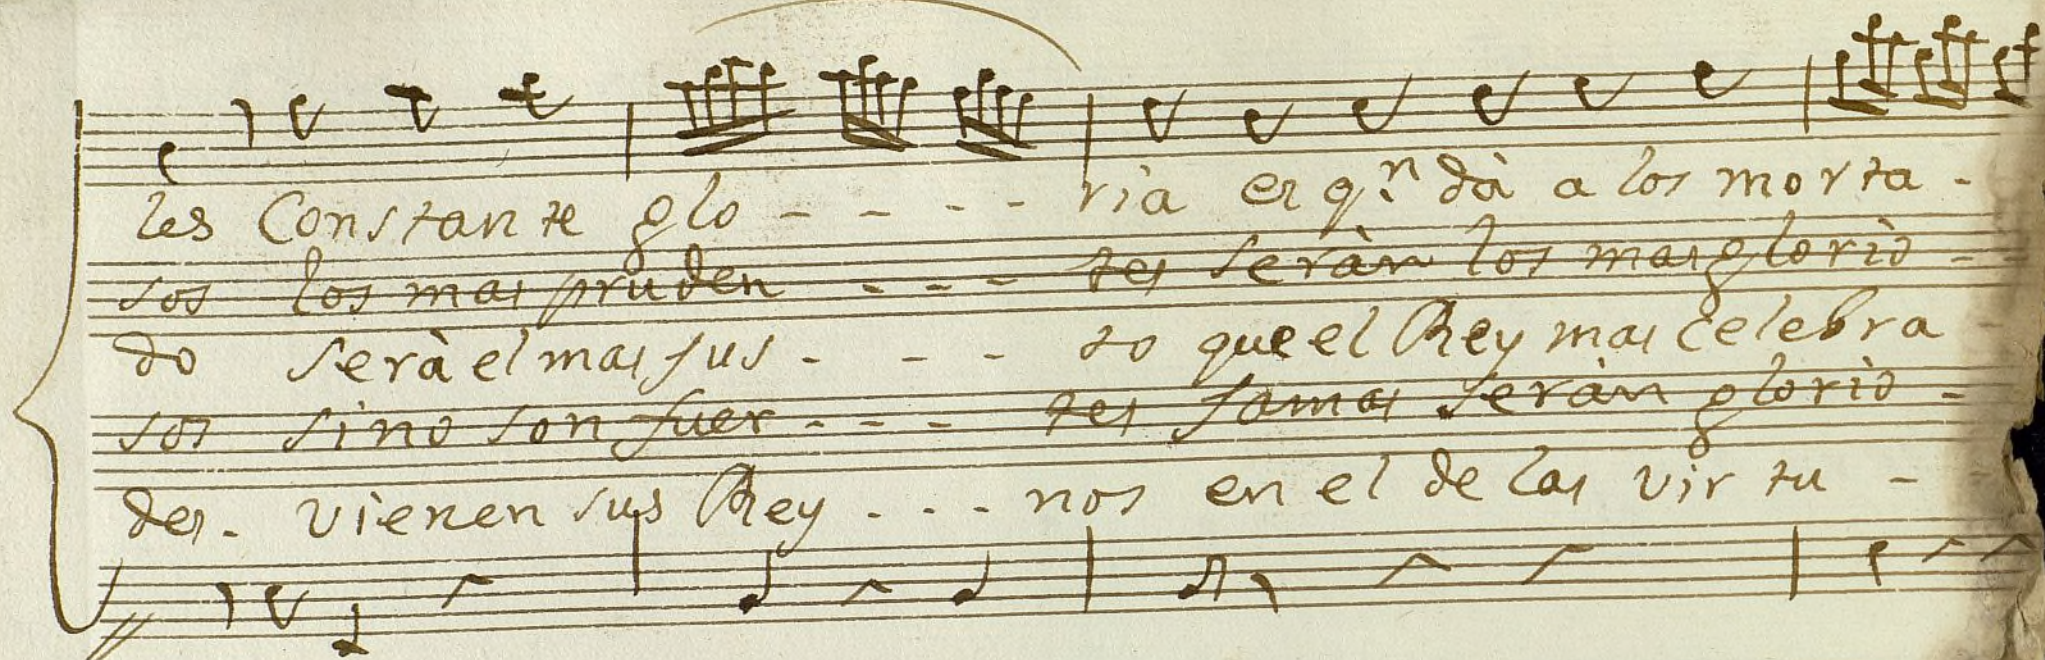 les Constante glo - - - - - ria es q.n dà a los morta -
sos los mas pruden - - - tes seràn los mas gloriò -
do serà el mas jus - - - to que el Rey mas celebra -
sos sino son fuer - - - tes jamas seràn gloriò -
des. vienen sus Rey - - - nos en el de las virtu -